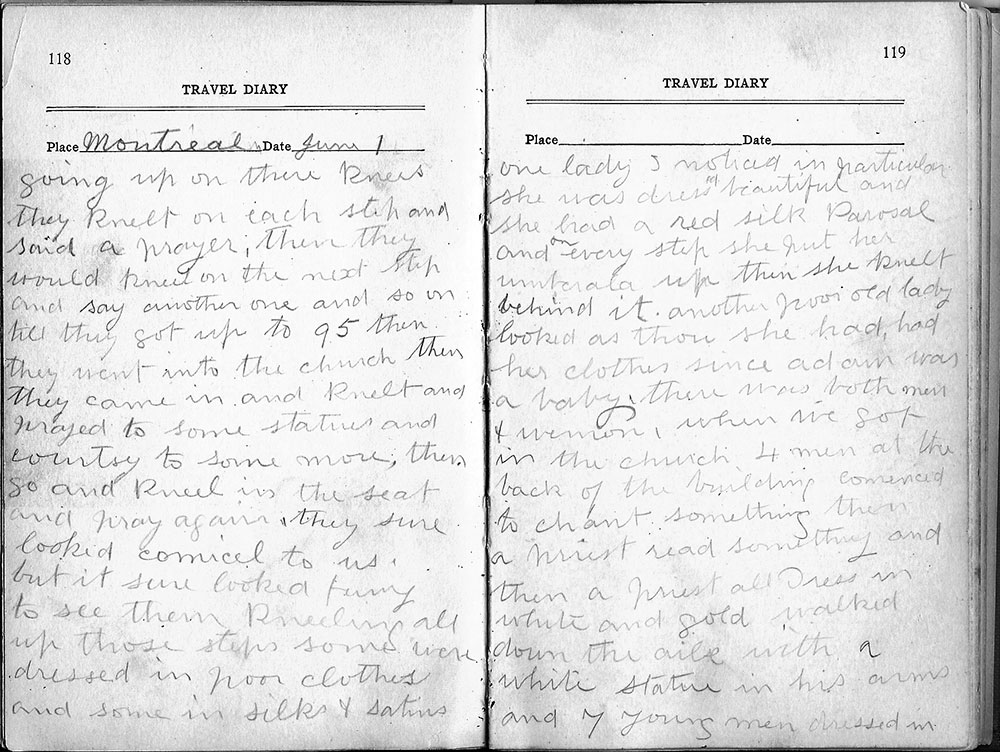 118
TRAVEL DIARY
Place Montreal Date June 1
going up on there knees
they knelt on each step and
said a prayer, then they
would kneel on the next step
and say another one and so on
till they got up to 95 then
they went into the church then
they came in and knelt and
prayed to some statues and
courtsy to some more, then
go and kneel in the seat
and pray again. they sure
looked comicel to us.
but it sure looked funny
to see them kneeling all
up those steps some were
dressed in poor clothes
and some in silks & satins
119
TRAVEL DIARY
Place Date
one lady I noticed in particular
she was dress beautiful and
she had a red silk Parosal
and on every step she put her
umberala up then she knelt
behind it. another poor old lady
looked as thou she had, had
her clothes since adam was
a baby. there was both men
& women, when we got
in the church 4 men at the
back of the building comenced
to chant something then
a priest read something and
then a priest all Dress in
white and gold walked
down the aile with a
white statue in his arms
and 7 young men dressed in